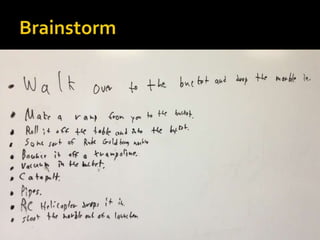 Brainstorm
• Walk over to the bucket and drop the marble in.
• Make a ramp from you to the bucket.
• Roll it off the table and into the bucket.
• Some sort of Rube Goldberg
• Bounce it off a trampoline.
• Vacuum in the bucket.
• Catapult.
• Pipes.
• RC Helicopter drops it in.
• shoot the marble out of a